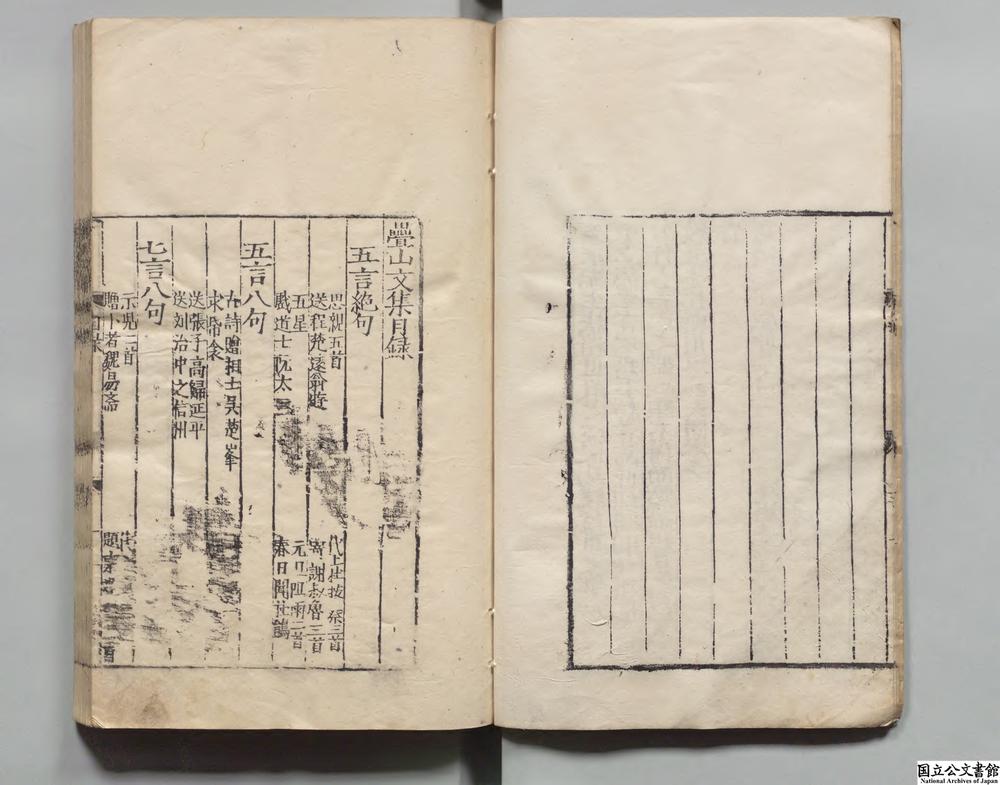 疊山文集目錄
五言絕句
思親五首
代上杜按察三首
送程楚翁遊
寄謝叔魯三首
五星
元日阻雨二首
戲道士阮太
春日聞杜鵑
五言八句
古詩贈相士吳楚峯
求帝衾
送張子高歸延平
送刘治中之信州
七言八句
示児二首
贈卜者魏易齋
目录
国立公文書館
National Archives of Japan